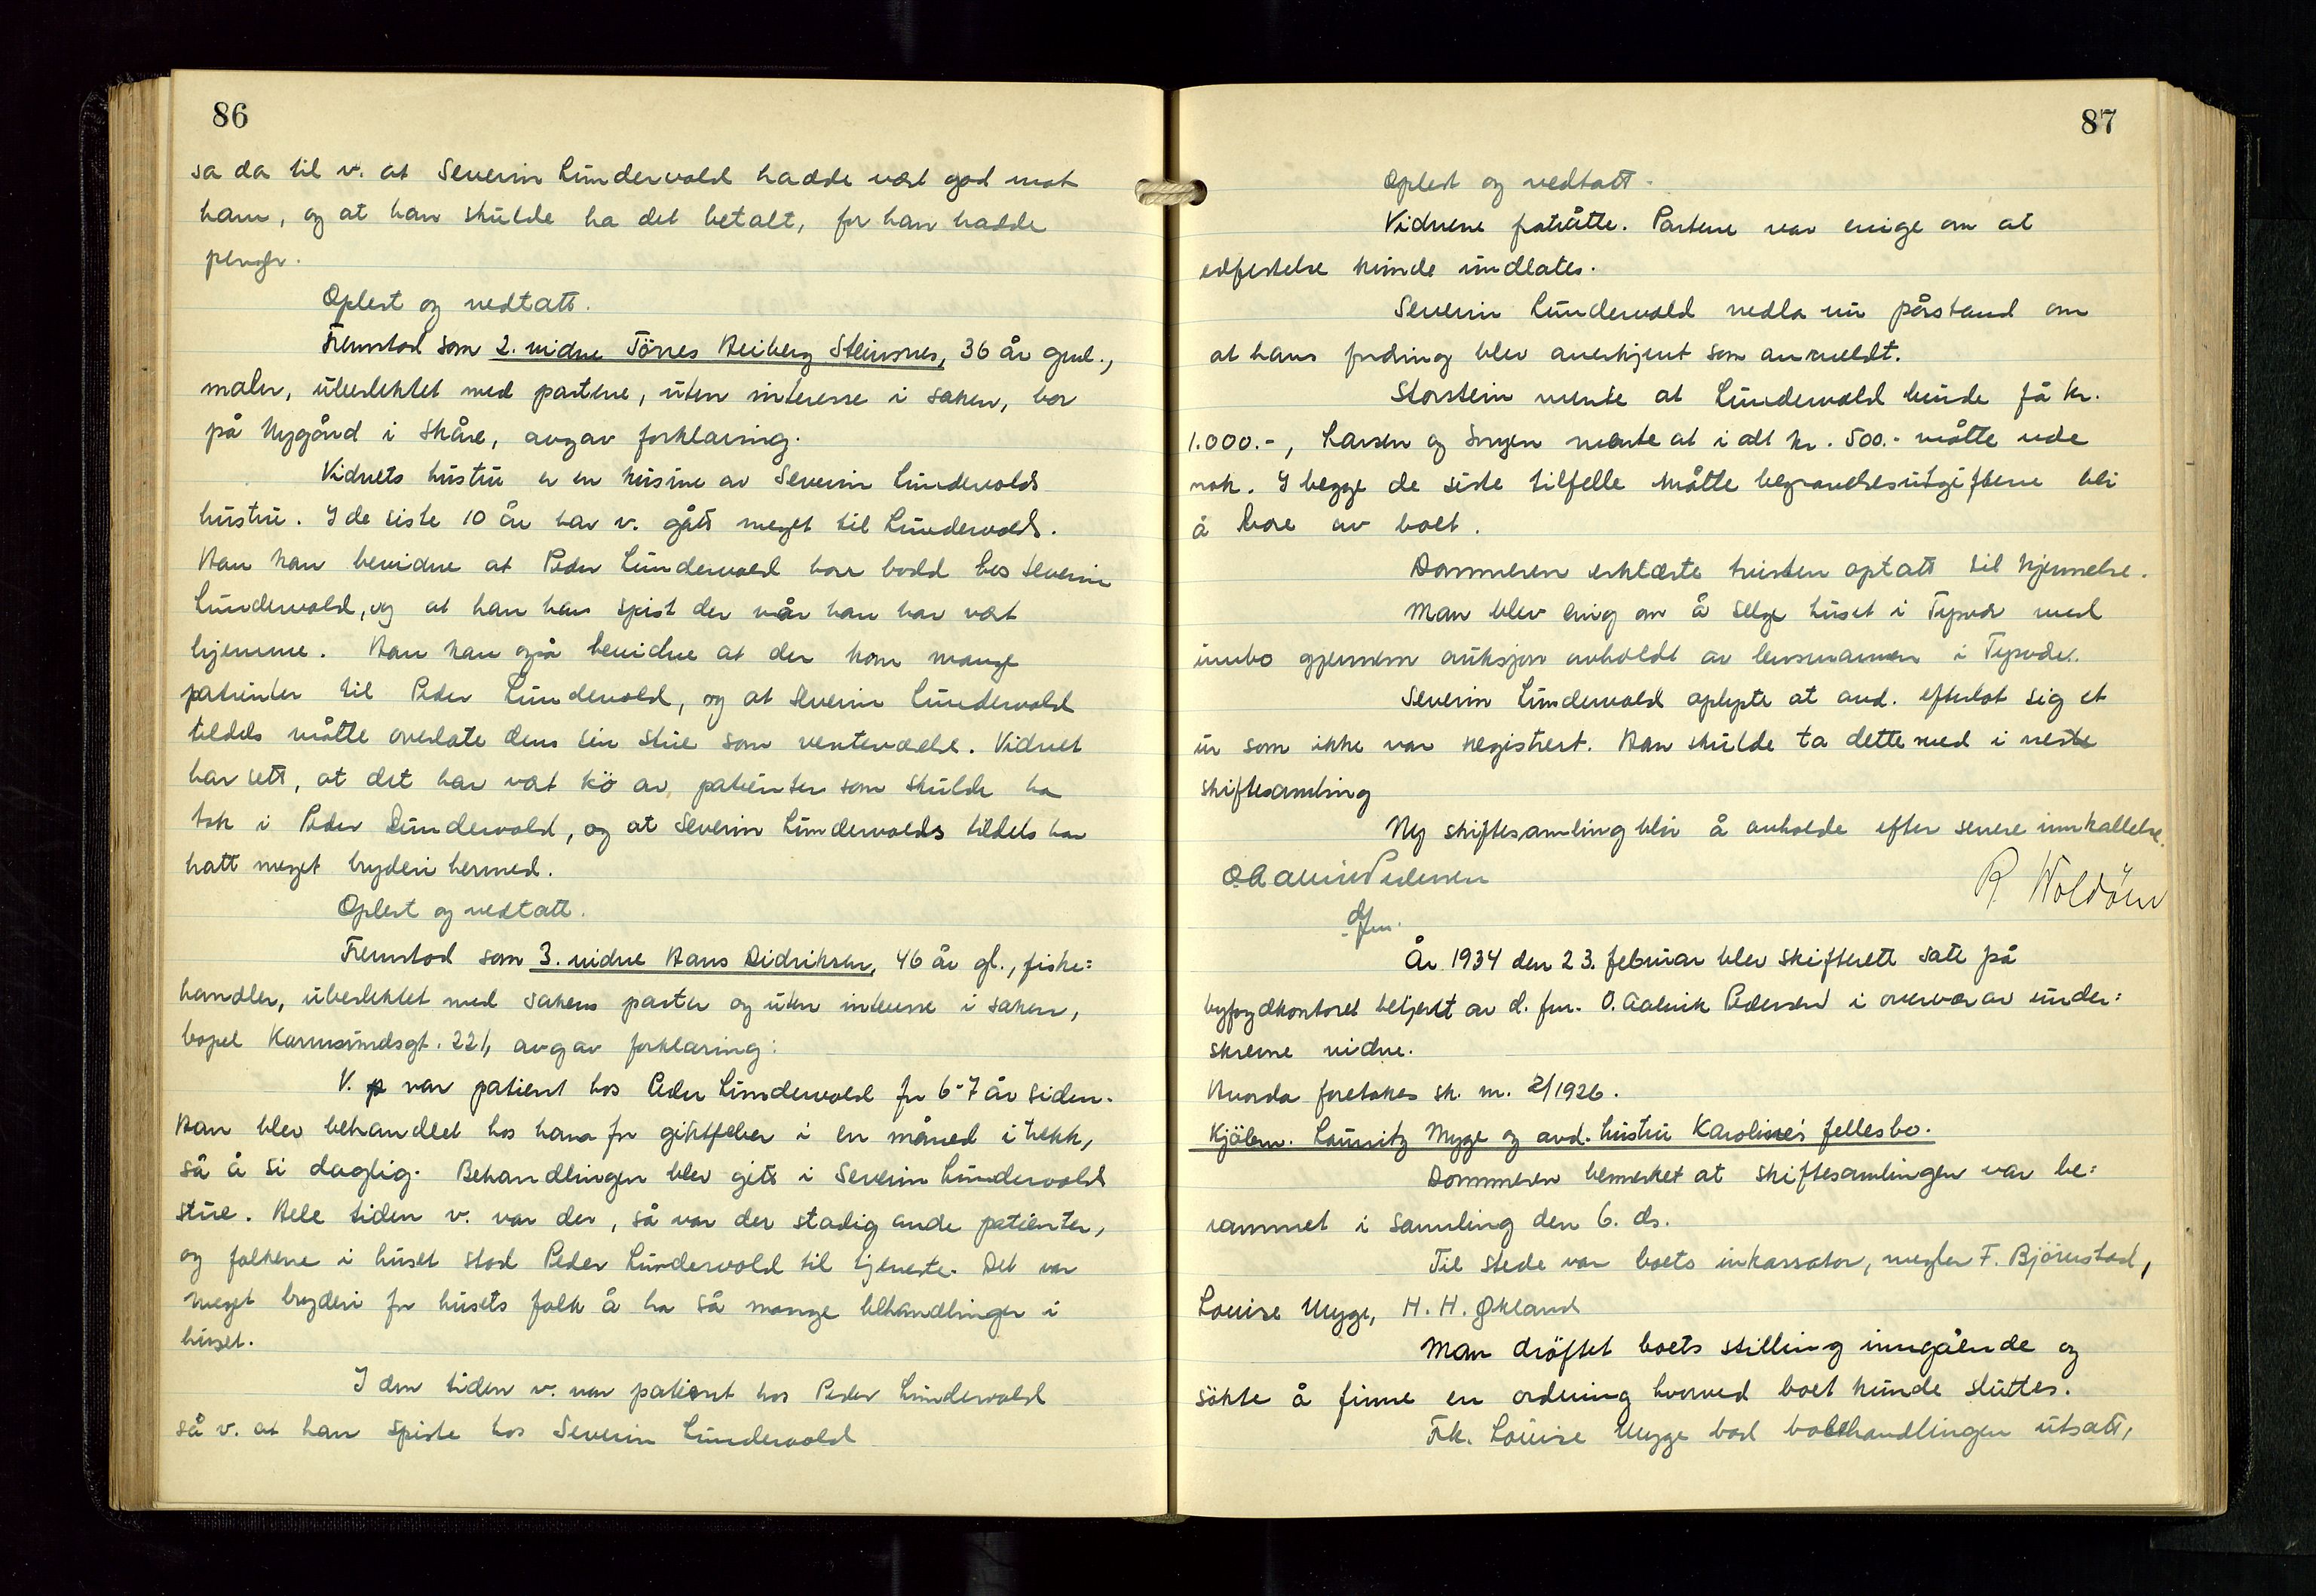 86
sa da til v. at Severin Lundervold hadde vært god mot
ham, og at han skulde ha det betalt, for han hadde
penger.
Oplest og vedtatt.
Fremstod som 2. vidne Törres Heiberg Steinsnes, 36 år gml.,
maler, ubeslektet med partene, uten interesse i saken, bor
på Nygård i Skåre, avgav forklaring.
Vidnets hustru er en kusine av Severin Lundervolds
hustru. I de siste 10 år har v. gått meget til Lundervolds.
Han kan bevidne at Peder Lundervold har bodd hos Severin
Lundervold, og at han har spist der når han har vært
hjemme. Han kan også bevidne at der kom mange
patienter til Peder Lundervold, og at Severin Lundervold
tildels måtte overlate dem sin stue som venteværelse. Vidnet
har sett, at det har vært kö av patienter som skulde ha
tak i Peder Lundervold, og at Severin Lundervolds tildels har
hatt meget bryderi hermed.
Oplest og vedtatt.
Fremstod som 3. vidne Hans Didriksen, 46 år gl., fiske=
handler, ubeslektet med sakens parter og uten interesse i saken,
bopel Karmsundsgt. 221, avgav forklaring:
V. var patient hos Peder Lundervold for 6-7 år siden.
Han blev behandlet hos ham for giktfeber i en måned i trekk,
så å si daglig. Behandlingen blev gitt i Severin Lundervolds
stue. Hele tiden v. var der, så var der stadig andre patienter,
og folkene i huset stod Peder Lundervold til tjeneste. Det var
meget bryderi for husets folk å ha så mange behandlinger i
huset.
I den tiden v. var patient hos Peder Lundervold
så v. at han spiste hos Severin Lundervold
87
Oplest og vedtatt.
Vidnene fratrådte. Partene var enige om at
edfestelse kunde undlates.
Severin Lundervold nedla nu påstand om
at hans fordring blev anerkjent som anmeldt.
Storstein mente at Lundervold burde få kr.
1.000.-, Larsen og mente at i alt kr. 500.- måtte være
nok. I begge de siste tilfelle måtte begravelsesutgiftene bli
å bære av boet.
Dommeren erklærte tvisten optatt til kjennelse.
Man blev enig om å selge huset i Tysvær med
innbo gjennem auksjon avholdt av lensmannen i Tysvær.
Severin Lundervold oplyste at avd. efterlot sig et
ur som ikke var registrert. Han skulde ta dette med i neste
skiftesamling
Ny skiftesamling blir å avholde efter senere innkallelse.
O. Aalvik Pedersen
dfm.
R Woldöen
År 1934 den 23. februar blev skifterett satt på
byfogdkontoret betjent av d. fm. O. Aalvik Pedersen i overvær av under=
skrevne vidne.
Hvorda foretokes sk. nr. 2/1926.
Kjöbm. Lauritz Mygge og avd. hustru Karoline's fellesbo.
Dommeren bemerket at skiftesamlingen var be=
rammet i samling den 6. ds.
Til stede var boets inkassator, megler F. Björnstad,
Louise Mygge, H. H. Økland
Man dröftet boets stilling inngående og
sökte å finne en ordning hvorved boet kunde sluttes.
Frk. Louise Mygge bad bobehandlingen utsatt,